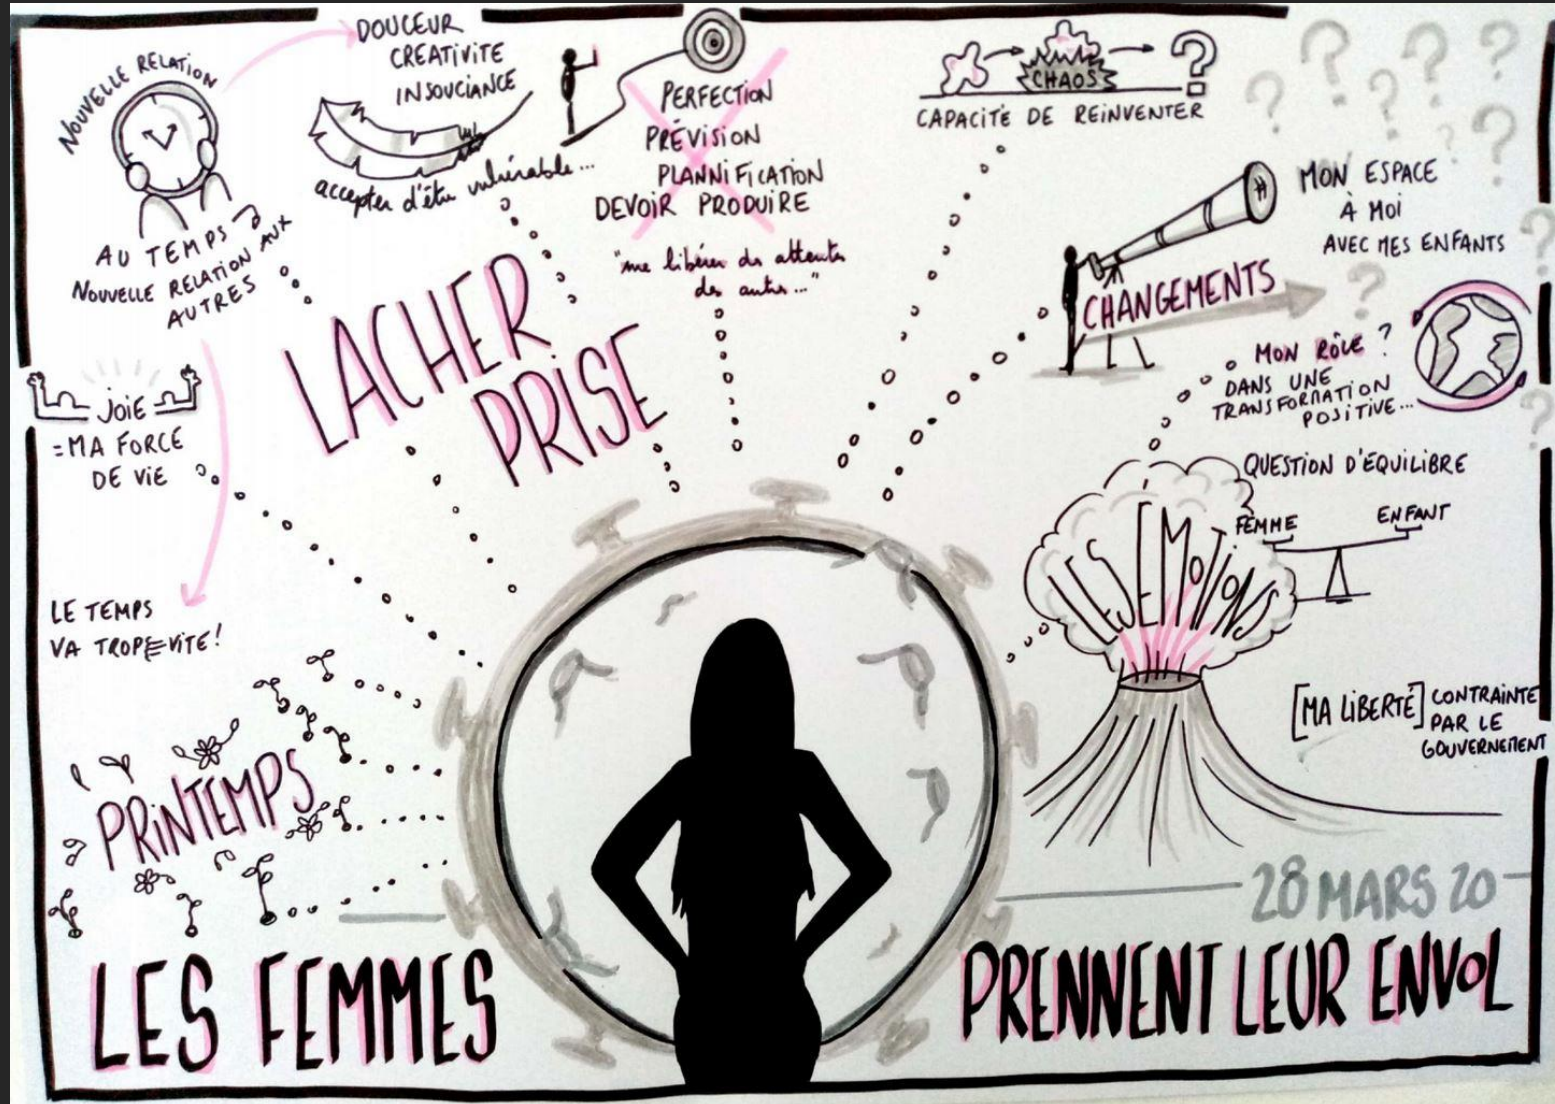 NOUVELLE RELATION
AU TEMPS
NOUVELLE RELATION AUX
AUTRES
DOUCEUR
CREATIVITE
INSOUCIANCE
accepter d'être vulnérable...
PERFECTION
PRÉVISION
PLANNIFICATION
DEVOIR PRODUIRE
"me libérer des attentes
des autres..."
CHAOS
?
CAPACITÉ DE REINVENTER
MON ESPACE
À MOI
AVEC MES ENFANTS
CHANGEMENTS
?
MON RÔLE ?
DANS UNE
TRANSFORMATION
POSITIVE...
LACHER
PRISE
JOIE
=MA FORCE
DE VIE
LE TEMPS
VA TROP VITE!
PRINTEMPS
QUESTION D'ÉQUILIBRE
FEMME
ENFANT
LES EMOTIONS
[MA LIBERTÉ] CONTRAINTE
PAR LE
GOUVERNEMENT
28 MARS 20
LES FEMMES
PRENNENT LEUR ENVOL